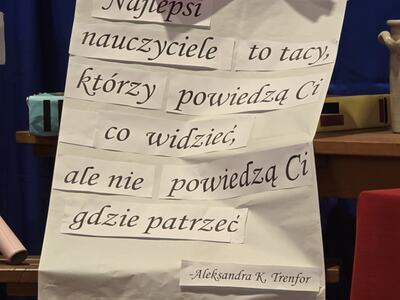 Najlepsi
nauczyciele to tacy,
którzy powiedzą Ci
co widzieć,
ale nie powiedzą Ci
gdzie patrzeć
-Aleksandra K. Trenfor